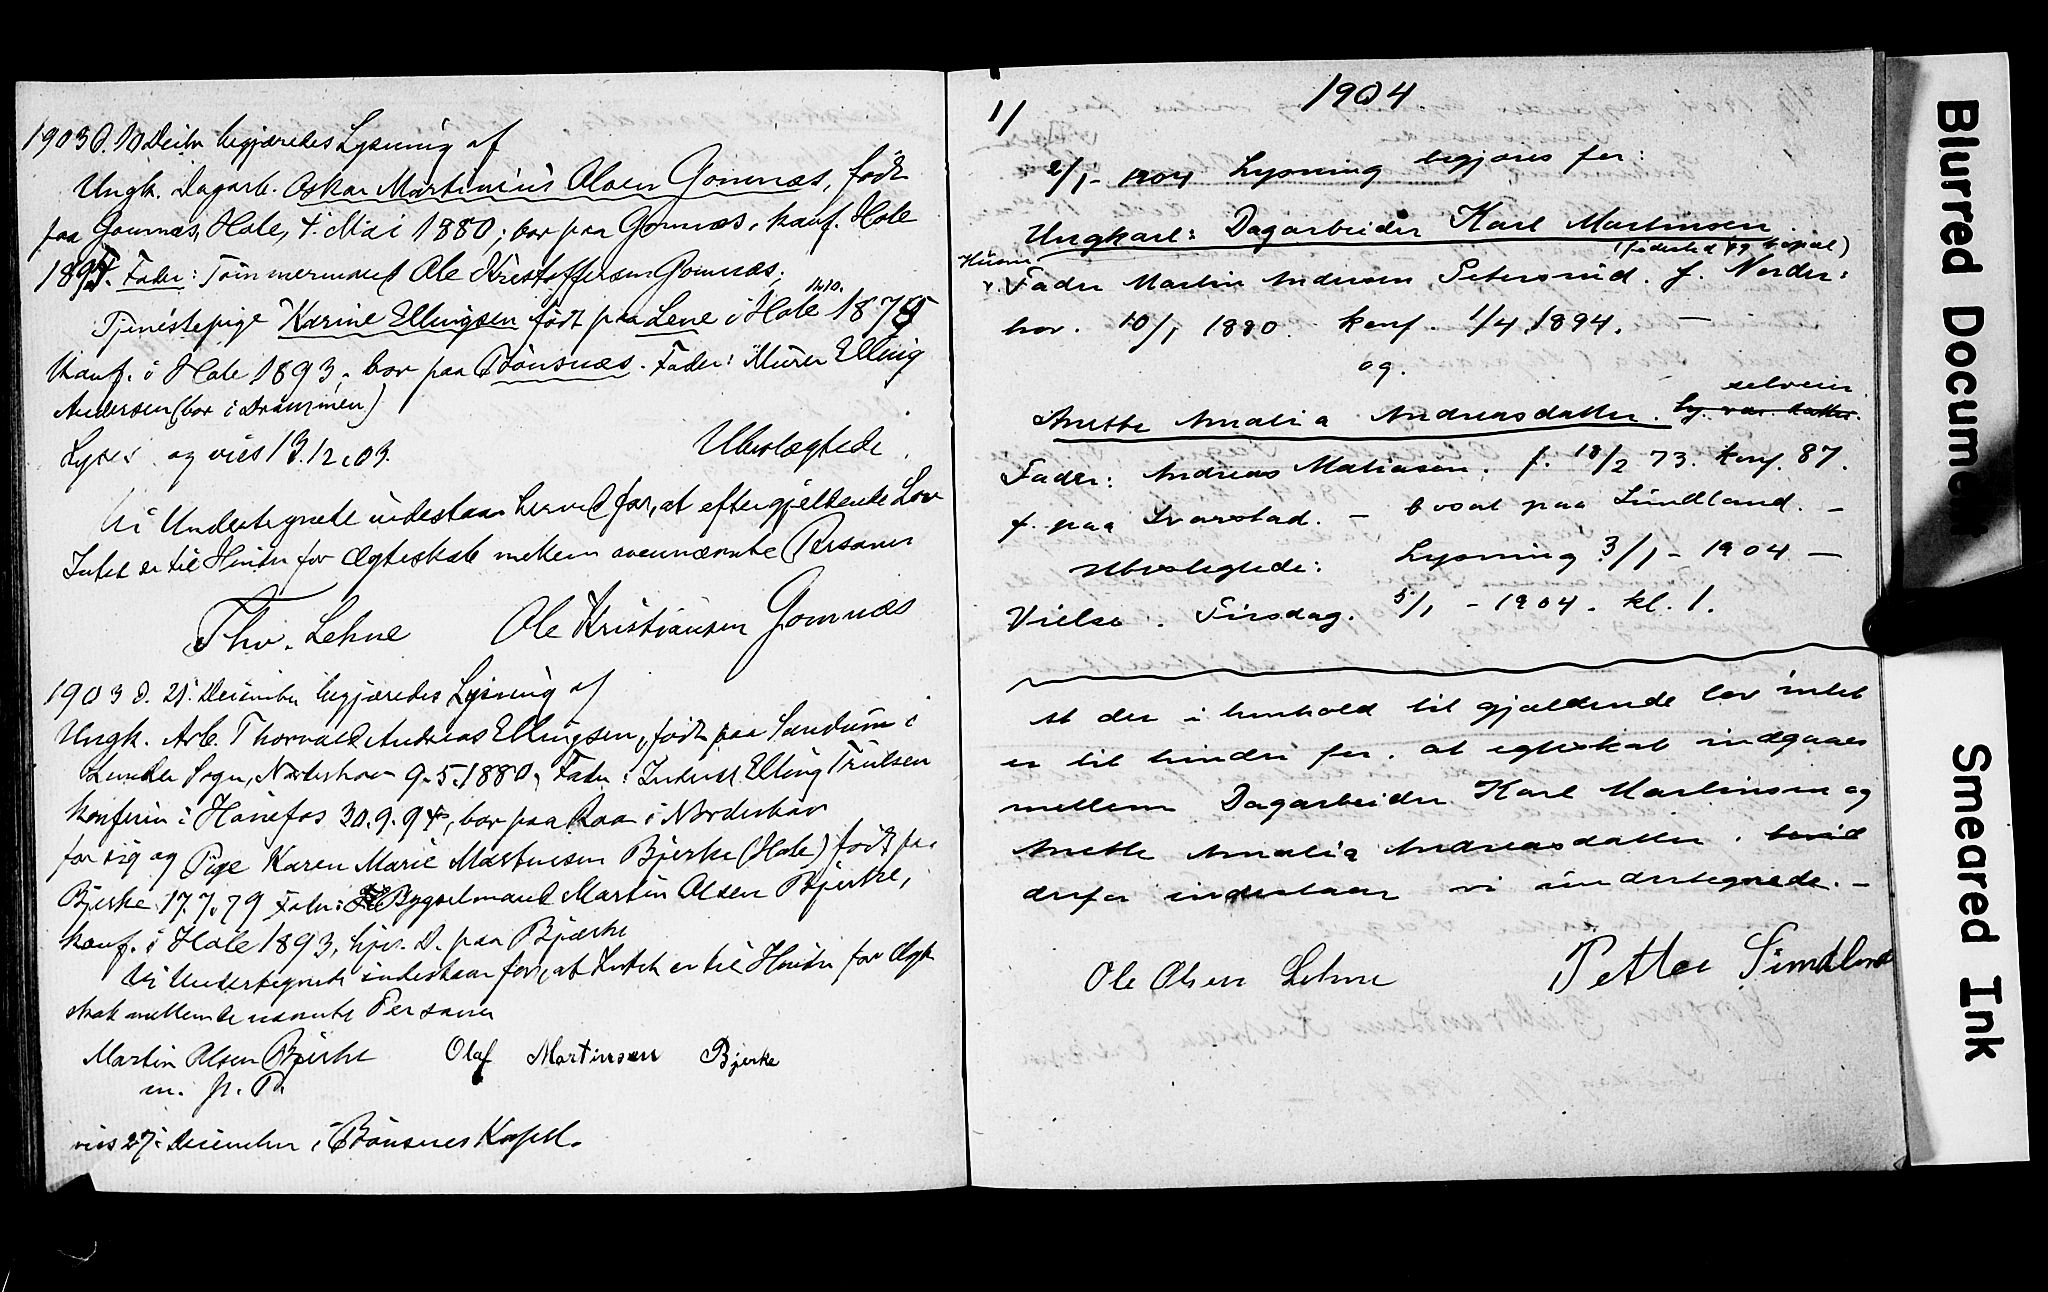 1903 d. 10 Decbr begjæredes Lysning af
Ungk. Dagarb. Oskar Martinius Olsen Gomnæs, født
paa Gomnæs, Hole, 4. Mai 1880, bor paa Gomnæs, konf. Hole
1894. Fader: Tømmermand Ole Kristoffersen Gomnæs,
Tjenestepige Karine Ellingsen født paa Lene i Hole 14/10. 1878
Konf. i Hole 1893, bor paa Bönsnæs. Fader: Murer Elling
Andersen (bor i Drammen)
Lyses og vies 13.12.03. Uberægtede
Vi Undertegnede indestaar herved for, at efter gjeldende Lov
Intet er til Hinder for Ægteskab mellem ovennævnte Personer
Tho. Lehne Ole Kristiansen Gomnæs
1903 d. 21. December begjæredes Lysning af
Ungk. Arb. Thorvald Andreas Ellingsen, født paa Sandum i
Lunder Sogn, Norderhov 9.5.1880, Fader: Inderst Elling Trulsen
konfirm i Hönefos 30.9.94, bor paa Raa i Norderhov
for sig og Pige Karen Marie Martinsen Bjerke (Hole) født paa
Bjerke 17.7.79 Fader: Bygselmand Martin Olsen Bjerke,
konf. i Hole 1893, hjv. D. paa Bjerke
Vi Undertegnede indestaar for, at Intet er til Hinder for Ægte
skab mellem de nævnte Personer
Martin Olsen Bjerke Olaf Martinsen Bjerke
m. p. P.
vies 27. December i Bönsnes Kapel.
1904
1/
2/1 - 1904 Lysning begjæres for:
Ungkarl: Dagarbeider Karl Martinsen.
(fødested og kapel)
Husm.
Fader Martin Andersen Setersrud. f. Norder:
hov. 10/1 1880. konf. 1/4 1894. —
og.
selveier
Anette Amalia Andreasdatter.
Fader: Andreas Matiasen. f. 18/2 73. konf. 87.
f. paa Svarstad. — bosat paa Sundland. —
Ubeslegtede: Lysning 3/1 - 1904 —
Vielse. Tirsdag. 5/1 - 1904. kl. 1.
At der i henhold til gjældende lov intet
er til hinder for, at egteskab indgaaes
mellem Dagarbeider Karl Martinsen og
Anette Amalia Andreasdatter,
derfor indestaar vi undertegnede. —
Ole Olsen Lehne Petter Sundland
Blurred Document
Smeared Ink